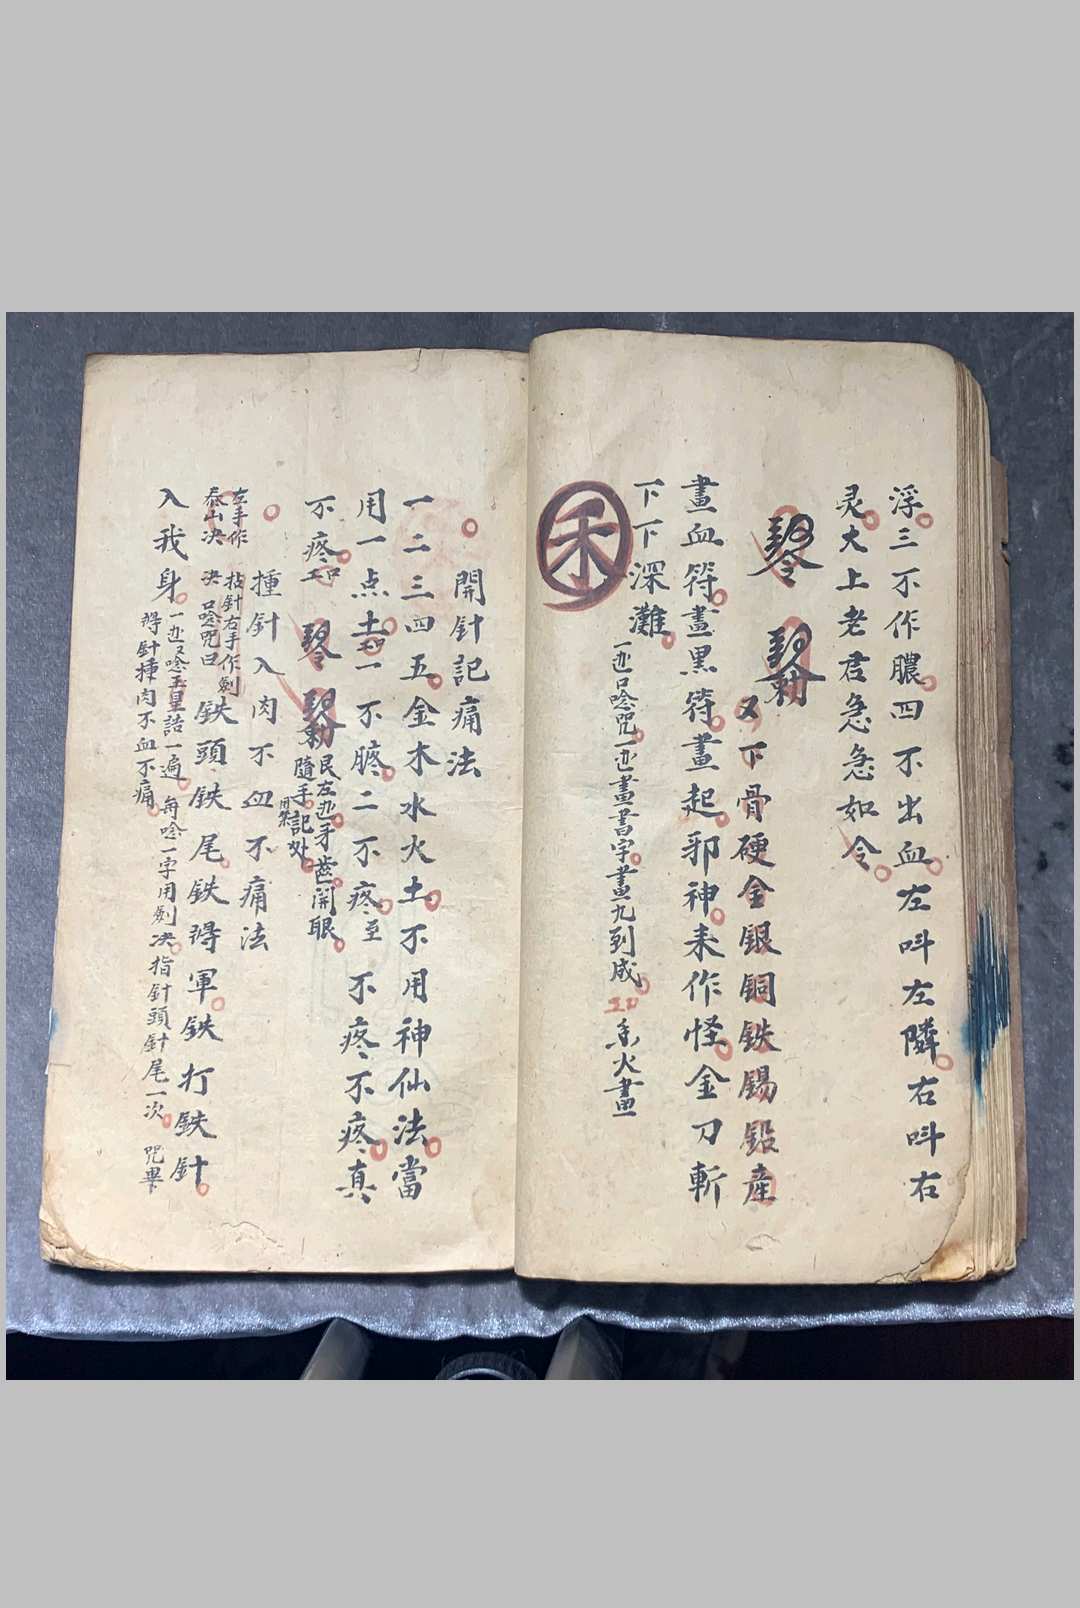 浮三不作膿四不出血左呌左隣右呌右
灵大上老君急急如令
又下骨硬金銀銅鉄錫鉛産
畫血符畫黑符畫起邪神未作怪金刀斬
下下深灘
一边口唸咒一边畫書字畫九到成
火畫
開針記痛法
一二三四五金木水火土不用神仙法當
用一点土一不膿二不疼至不疼不疼真
不疼
民左边牙齒開眼
隨手記处
揰針入肉不血不痛法
左手作
泰山决
拈針右手作劍
决口唸咒曰
鉄頭鉄尾鉄將軍鉄打鉄針
入我身
一边又唸玉皇誥一遍每唸一字用劍决指針頭針尾一次咒畢
將針揰肉不血不痛